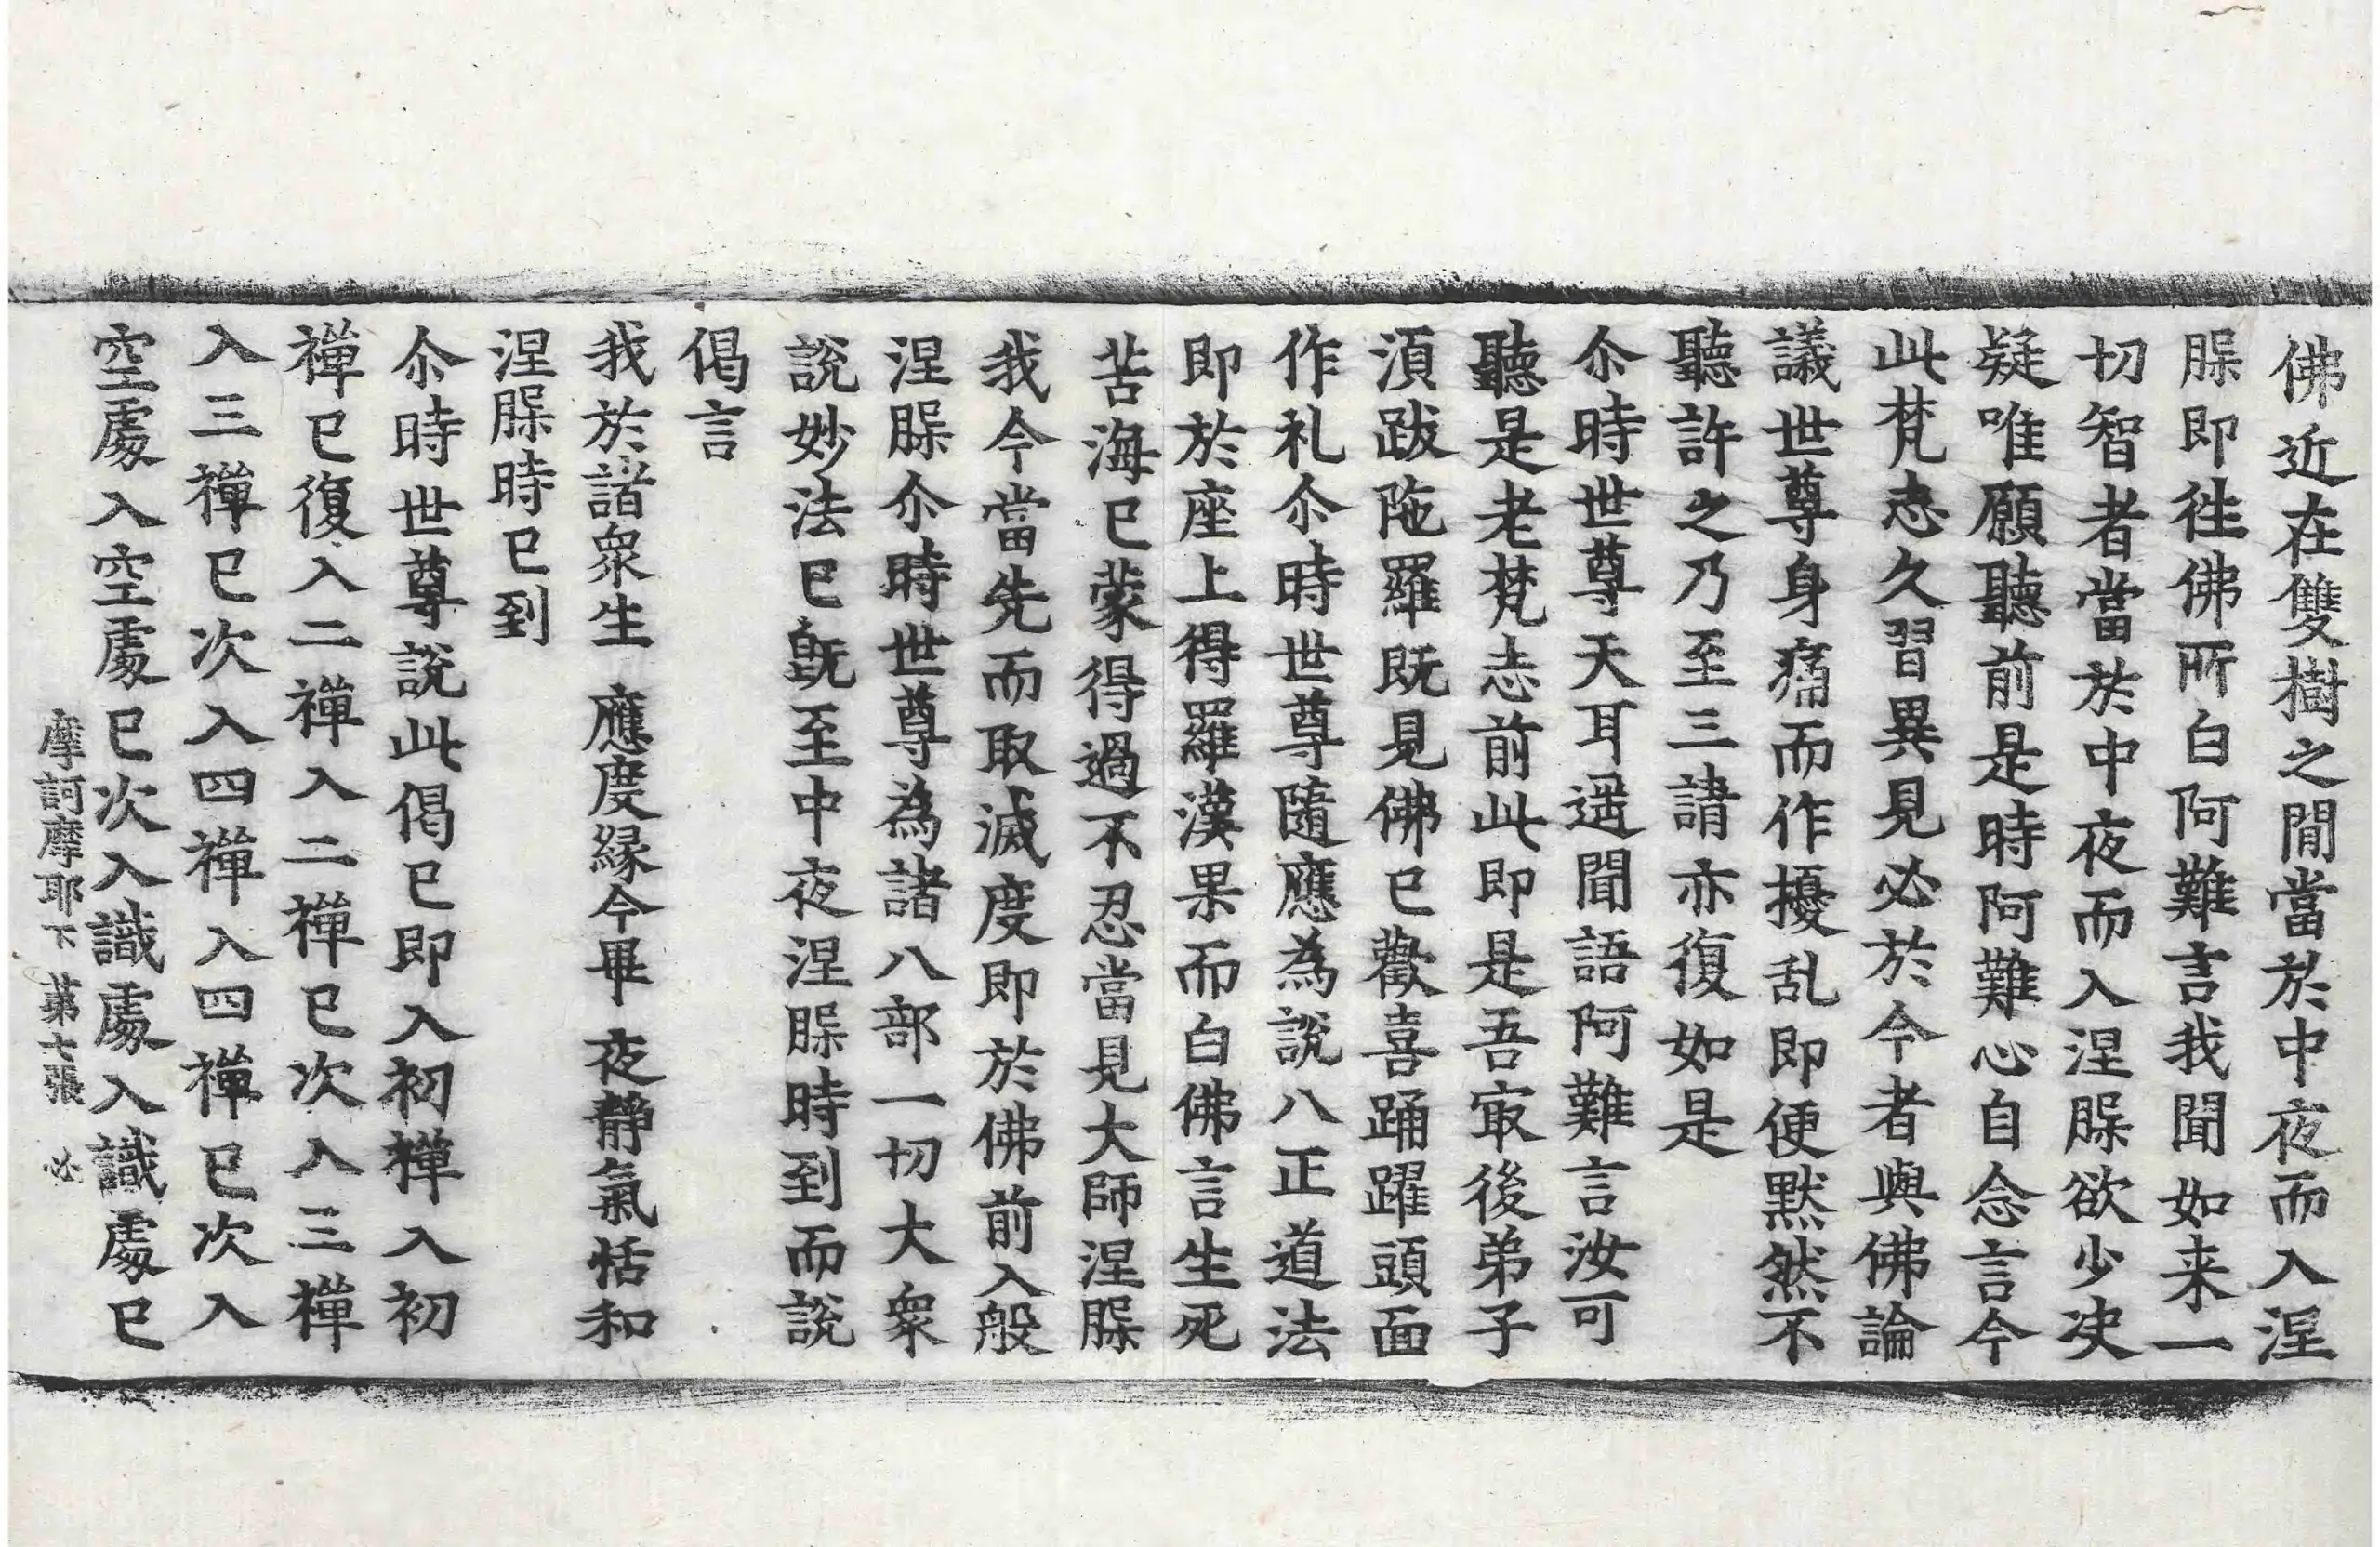 佛近在雙樹之閒當於中夜而入涅
槃即徃佛所白阿難言我聞如来一
切智者當於中夜而入涅槃欲少决
疑唯願聽前是時阿難心自念言今
此梵志久習異見必於今者與佛論
議世尊身痛而作擾乱即便黙然不
聽許之乃至三請亦復如是
尒時世尊天耳遥聞語阿難言汝可
聽是老梵志前此即是吾㝡後弟子
湏跋陁羅既見佛已歡喜踊躍頭面
作礼尒時世尊隨應為說八正道法
即於座上得羅漢果而白佛言生死
苦海已蒙得過不忍當見大師涅槃
我今當先而取滅度即於佛前入般
涅槃尒時世尊為諸八部一切大衆
說妙法已旣至中夜涅槃時到而說
偈言
我於諸衆生　應度縁今畢　夜靜氣恬和
涅槃時已到
尒時世尊說此偈已即入初禪入初
禪已復入二禪入二禪已次入三禪
入三禪已次入四禪入四禪已次入
空處入空處已次入識處入識處已
摩訶摩耶下　第七張　必